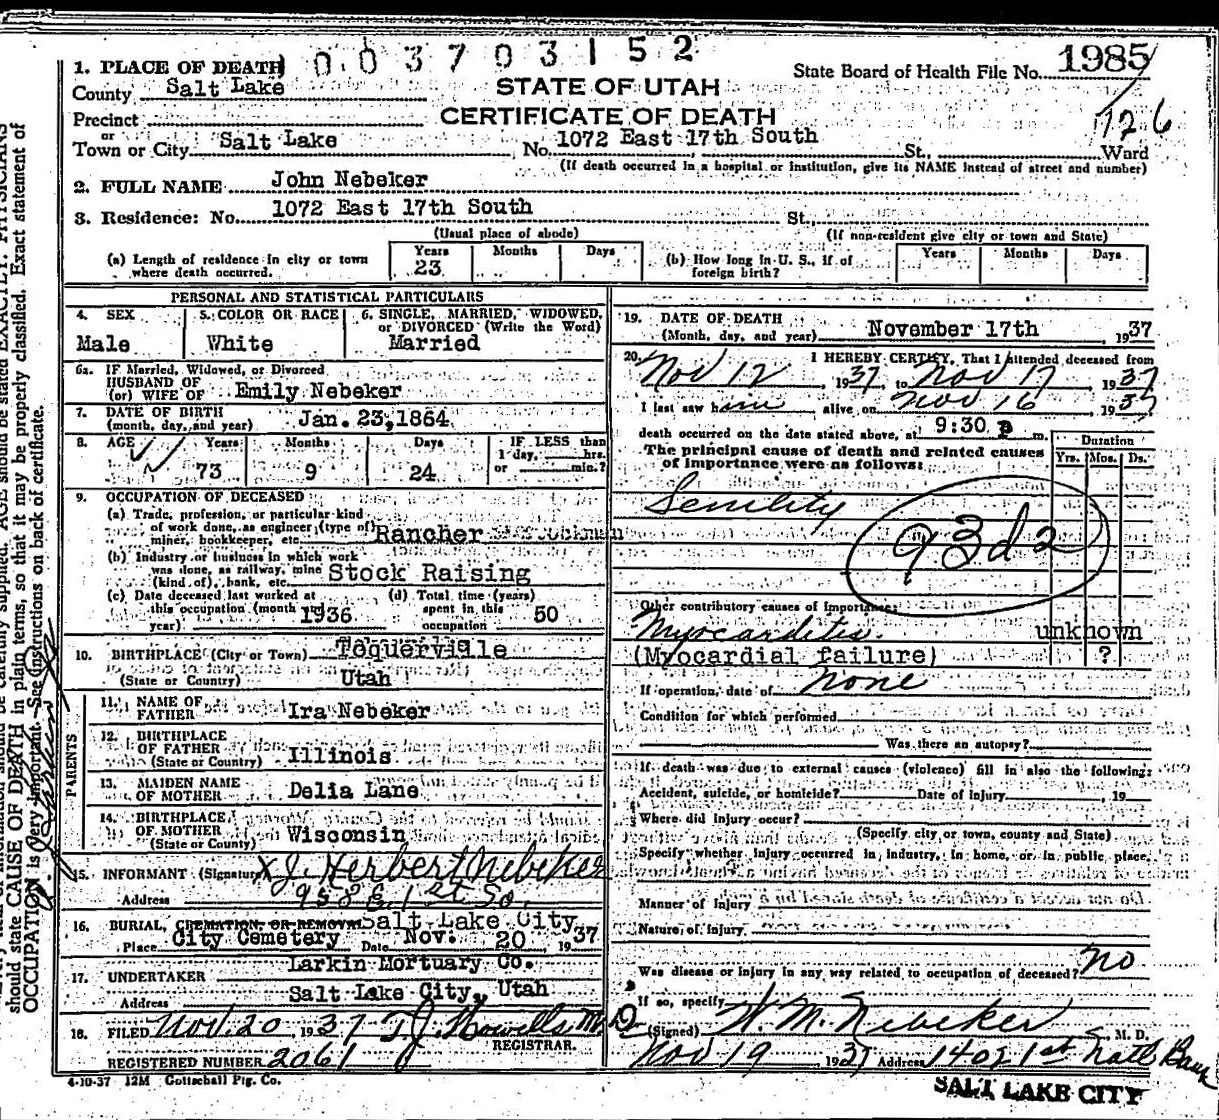 003703152
1985
1. PLACE OF DEATH
State Board of Health File No.
County Salt Lake
STATE OF UTAH
126
Precinct
CERTIFICATE OF DEATH
or
Town or City Salt Lake No. 1072 East 17th South St., Ward
(If death occurred in a hospital or institution, give its NAME instead of street and number)
2. FULL NAME John Nebeker
3. Residence: No. 1072 East 17th South St.
(Usual place of abode) (If non-resident give city or town and State)
(a) Length of residence in city or town where death occurred. Years 23 Months Days
(b) How long in U. S., if of foreign birth? Years Months Days
PERSONAL AND STATISTICAL PARTICULARS
4. SEX Male
5. COLOR OR RACE White
6. SINGLE, MARRIED, WIDOWED, or DIVORCED (Write the Word) Married
6a. IF Married, Widowed, or Divorced
HUSBAND OF
(or) WIFE OF Emily Nebeker
7. DATE OF BIRTH
(month, day, and year) Jan. 23, 1864
8. AGE Years 73 Months 9 Days 24 IF LESS than 1 day, hrs. or min.?
9. OCCUPATION OF DECEASED
(a) Trade, profession, or particular kind
of work done, as engineer, (type of)
miner, bookkeeper, etc. Rancher
(b) Industry or business in which work
was done, as railway, mine
(kind of), bank, etc. Stock Raising
(c) Date deceased last worked at
this occupation (month and
year) 1936
(d) Total time (years)
spent in this
occupation 50
10. BIRTHPLACE (City or Town) Toquerville
(State or Country) Utah
PARENTS
11. NAME OF
FATHER Ira Nebeker
12. BIRTHPLACE
OF FATHER
(State or Country) Illinois
13. MAIDEN NAME
OF MOTHER Delia Lane
14. BIRTHPLACE
OF MOTHER
(State or County) Wisconsin
15. INFORMANT (Signature) X J. Herbert Nebeker
Address 958 E. 1st So.
16. BURIAL, CREMATION, OR REMOVAL Salt Lake City
Place City Cemetery Date Nov. 20 1937
17. UNDERTAKER Larkin Mortuary Co.
Address Salt Lake City, Utah
18. FILED Nov. 20 1937 T J Howells M.D.
REGISTRAR.
REGISTERED NUMBER 2061
4-10-37 12M Gottschall Ptg. Co.
19. DATE OF DEATH
(Month, day, and year) November 17th 1937
20. I HEREBY CERTIFY, That I attended deceased from
Nov 12, 1937, to Nov 17 1937
I last saw him alive on Nov 16 1937
death occurred on the date stated above, at 9:30 P m.
The principal cause of death and related causes
of importance were as follows:
Duration
Yrs. Mos. Ds.
Senility
93d2
Other contributory causes of importance:
Myocarditis. unknown
(Myocardial failure) ?
If operation, date of none
Condition for which performed
Was there an autopsy?
If death was due to external causes (violence) fill in also the following:
Accident, suicide, or homicide? Date of injury 19
Where did injury occur?
(Specify city or town, county and State)
Specify whether injury occurred in industry, in home, or in public place.
Manner of injury
Nature of injury
Was disease or injury in any way related to occupation of deceased? no
If so, specify
(Signed) W. M. Nebeker M. D.
Nov 19 1937 Address 1402 1st Natl Bank
SALT LAKE CITY
should state CAUSE OF DEATH in plain terms, so that it may be properly classified. Exact statement of
OCCUPATION is very important. See instructions on back of certificate.